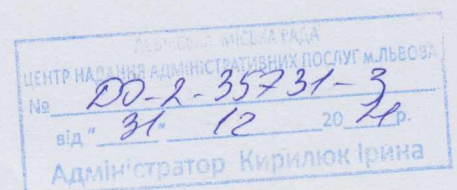 ЛЬВІВСЬКА МІСЬКА РАДА
ЦЕНТР НАДАННЯ АДМІНІСТРАТИВНИХ ПОСЛУГ м.ЛЬВОВА
№ ДО-2-35731-3
від " 31 " 12 20 21 р.
Адміністратор Кирилюк Ірина